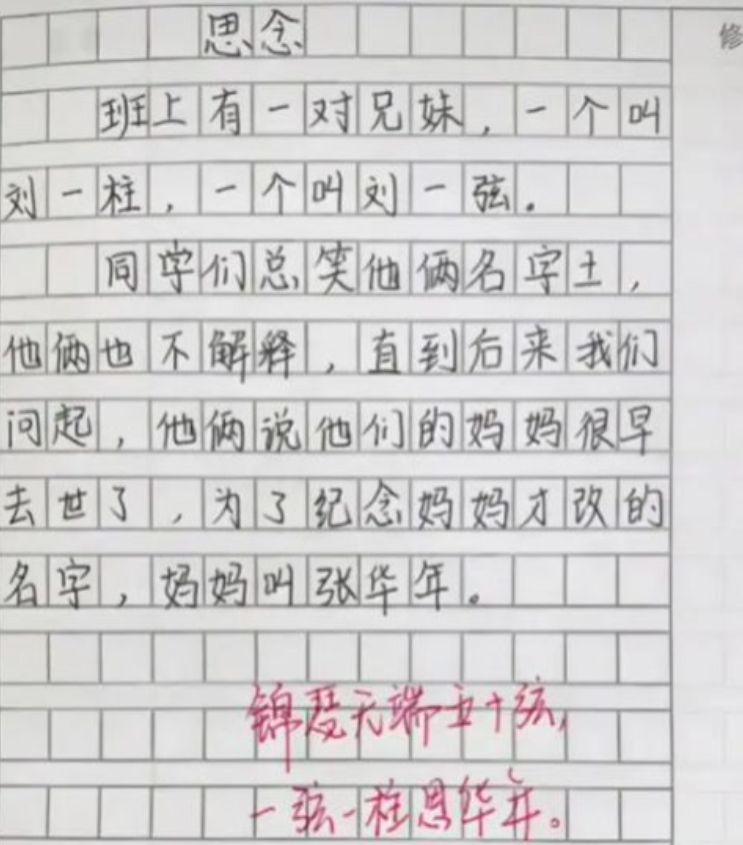 修
思念
班上有一对兄妹，一个叫
刘一柱，一个叫刘一弦。
同学们总笑他俩名字土，
他俩也不解释，直到后来我们
问起，他俩说他们的妈妈很早
去世了，为了纪念妈妈才改的
名字，妈妈叫张华年。
锦瑟无端五十弦，
一弦一柱思华年。